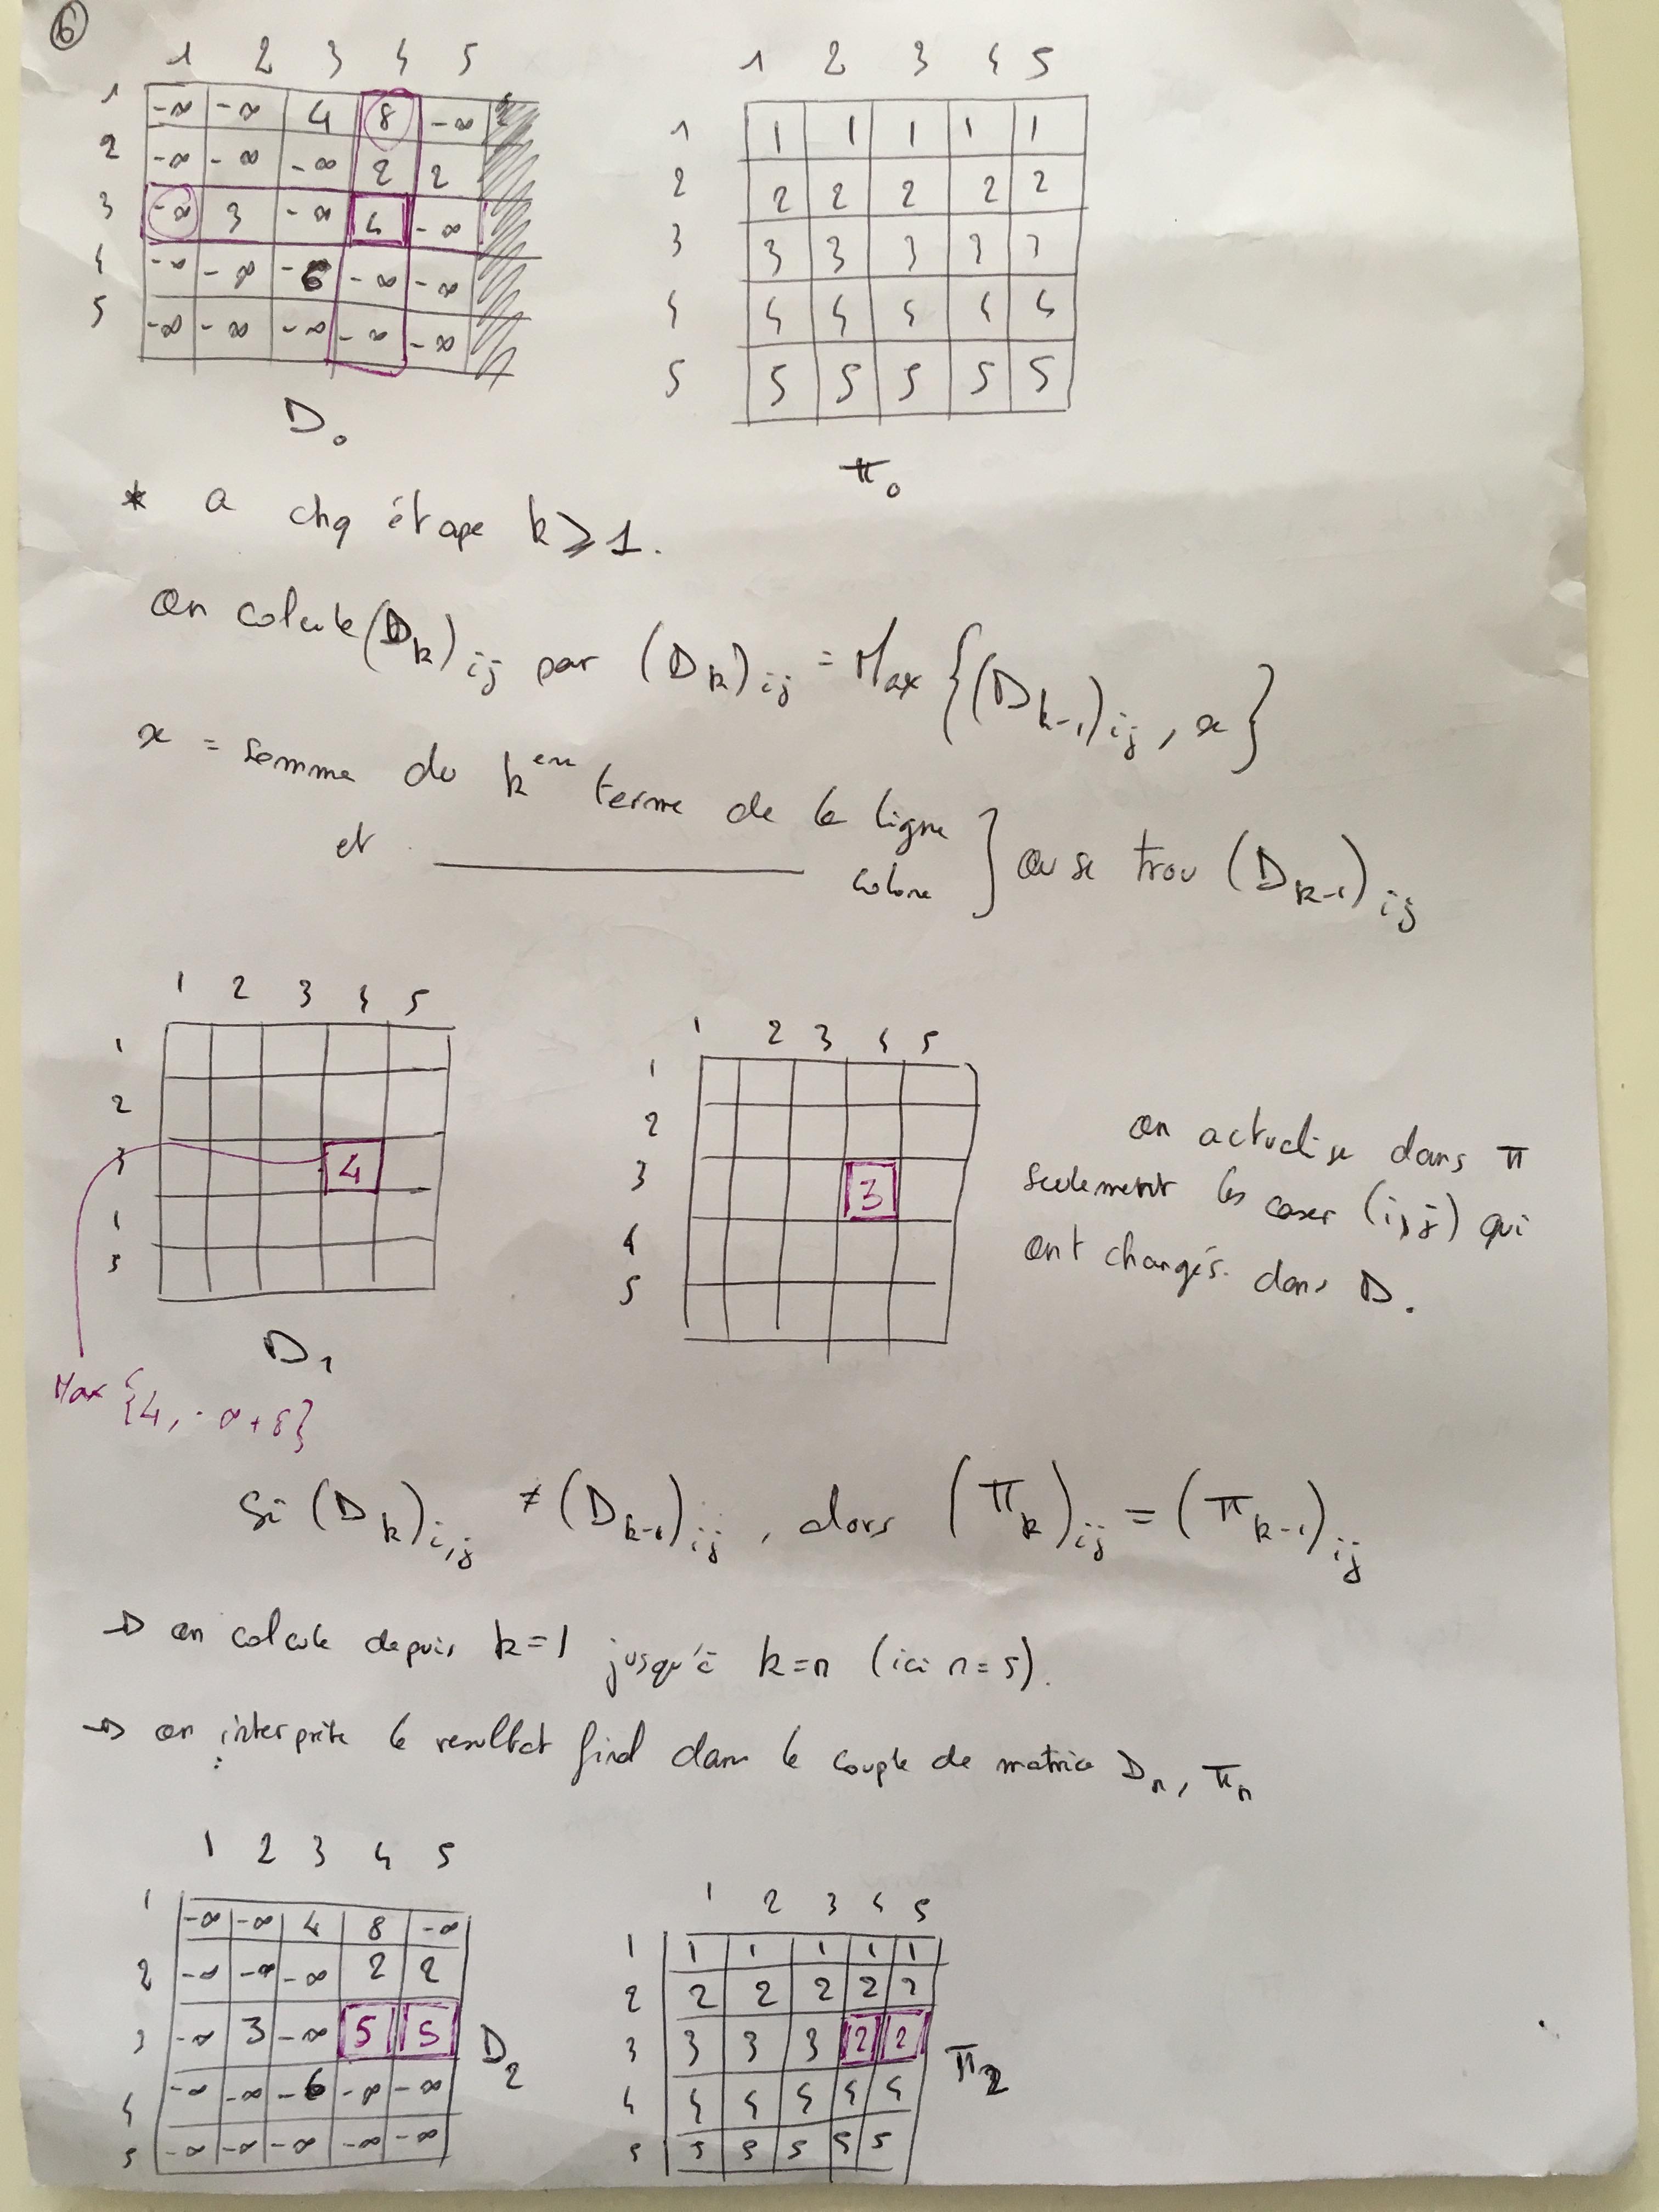 6
1 2 3 4 5
1 -∞ -∞ 4 8 -∞
2 -∞ -∞ -∞ 2 2
3 -∞ 3 -∞ 4 -∞
4 -∞ -∞ -6 -∞ -∞
5 -∞ -∞ -∞ -∞ -∞
D₀
1 2 3 4 5
1 1 1 1 1 1
2 2 2 2 2 2
3 3 3 3 3 3
4 4 4 4 4 4
5 5 5 5 5 5
π₀
* a chq étape k ⩾ 1.
on calcule (D_k)_ij par (D_k)_ij = Max {(D_k-1)_ij , x}
x = somme du k^em terme de la ligne
et ————— colone } ou se trou (D_k-1)_ij
1 2 3 4 5
1
2
3 4
4
5
D₁
Max {4, -∞+8}
1 2 3 4 5
1
2
3 3
4
5
on actualise dans π
seulement les cases (i,j) qui
ont changés dans D.
Si (D_k)_i,j ≠ (D_k-1)_ij , alors (π_k)_ij = (π_k-1)_ij
→ on calcule depuis k=1 jusqu'à k=n (ici n=5).
→ on interprète le resultat final dans le couple de matrice D_n, π_n
:
1 2 3 4 5
1 -∞ -∞ 4 8 -∞
2 -∞ -∞ -∞ 2 2
3 -∞ 3 -∞ 5 5
4 -∞ -∞ -6 -∞ -∞
5 -∞ -∞ -∞ -∞ -∞
D₂
1 2 3 4 5
1 1 1 1 1 1
2 2 2 2 2 2
3 3 3 3 2 2
4 4 4 4 4 4
5 5 5 5 5 5
π₂